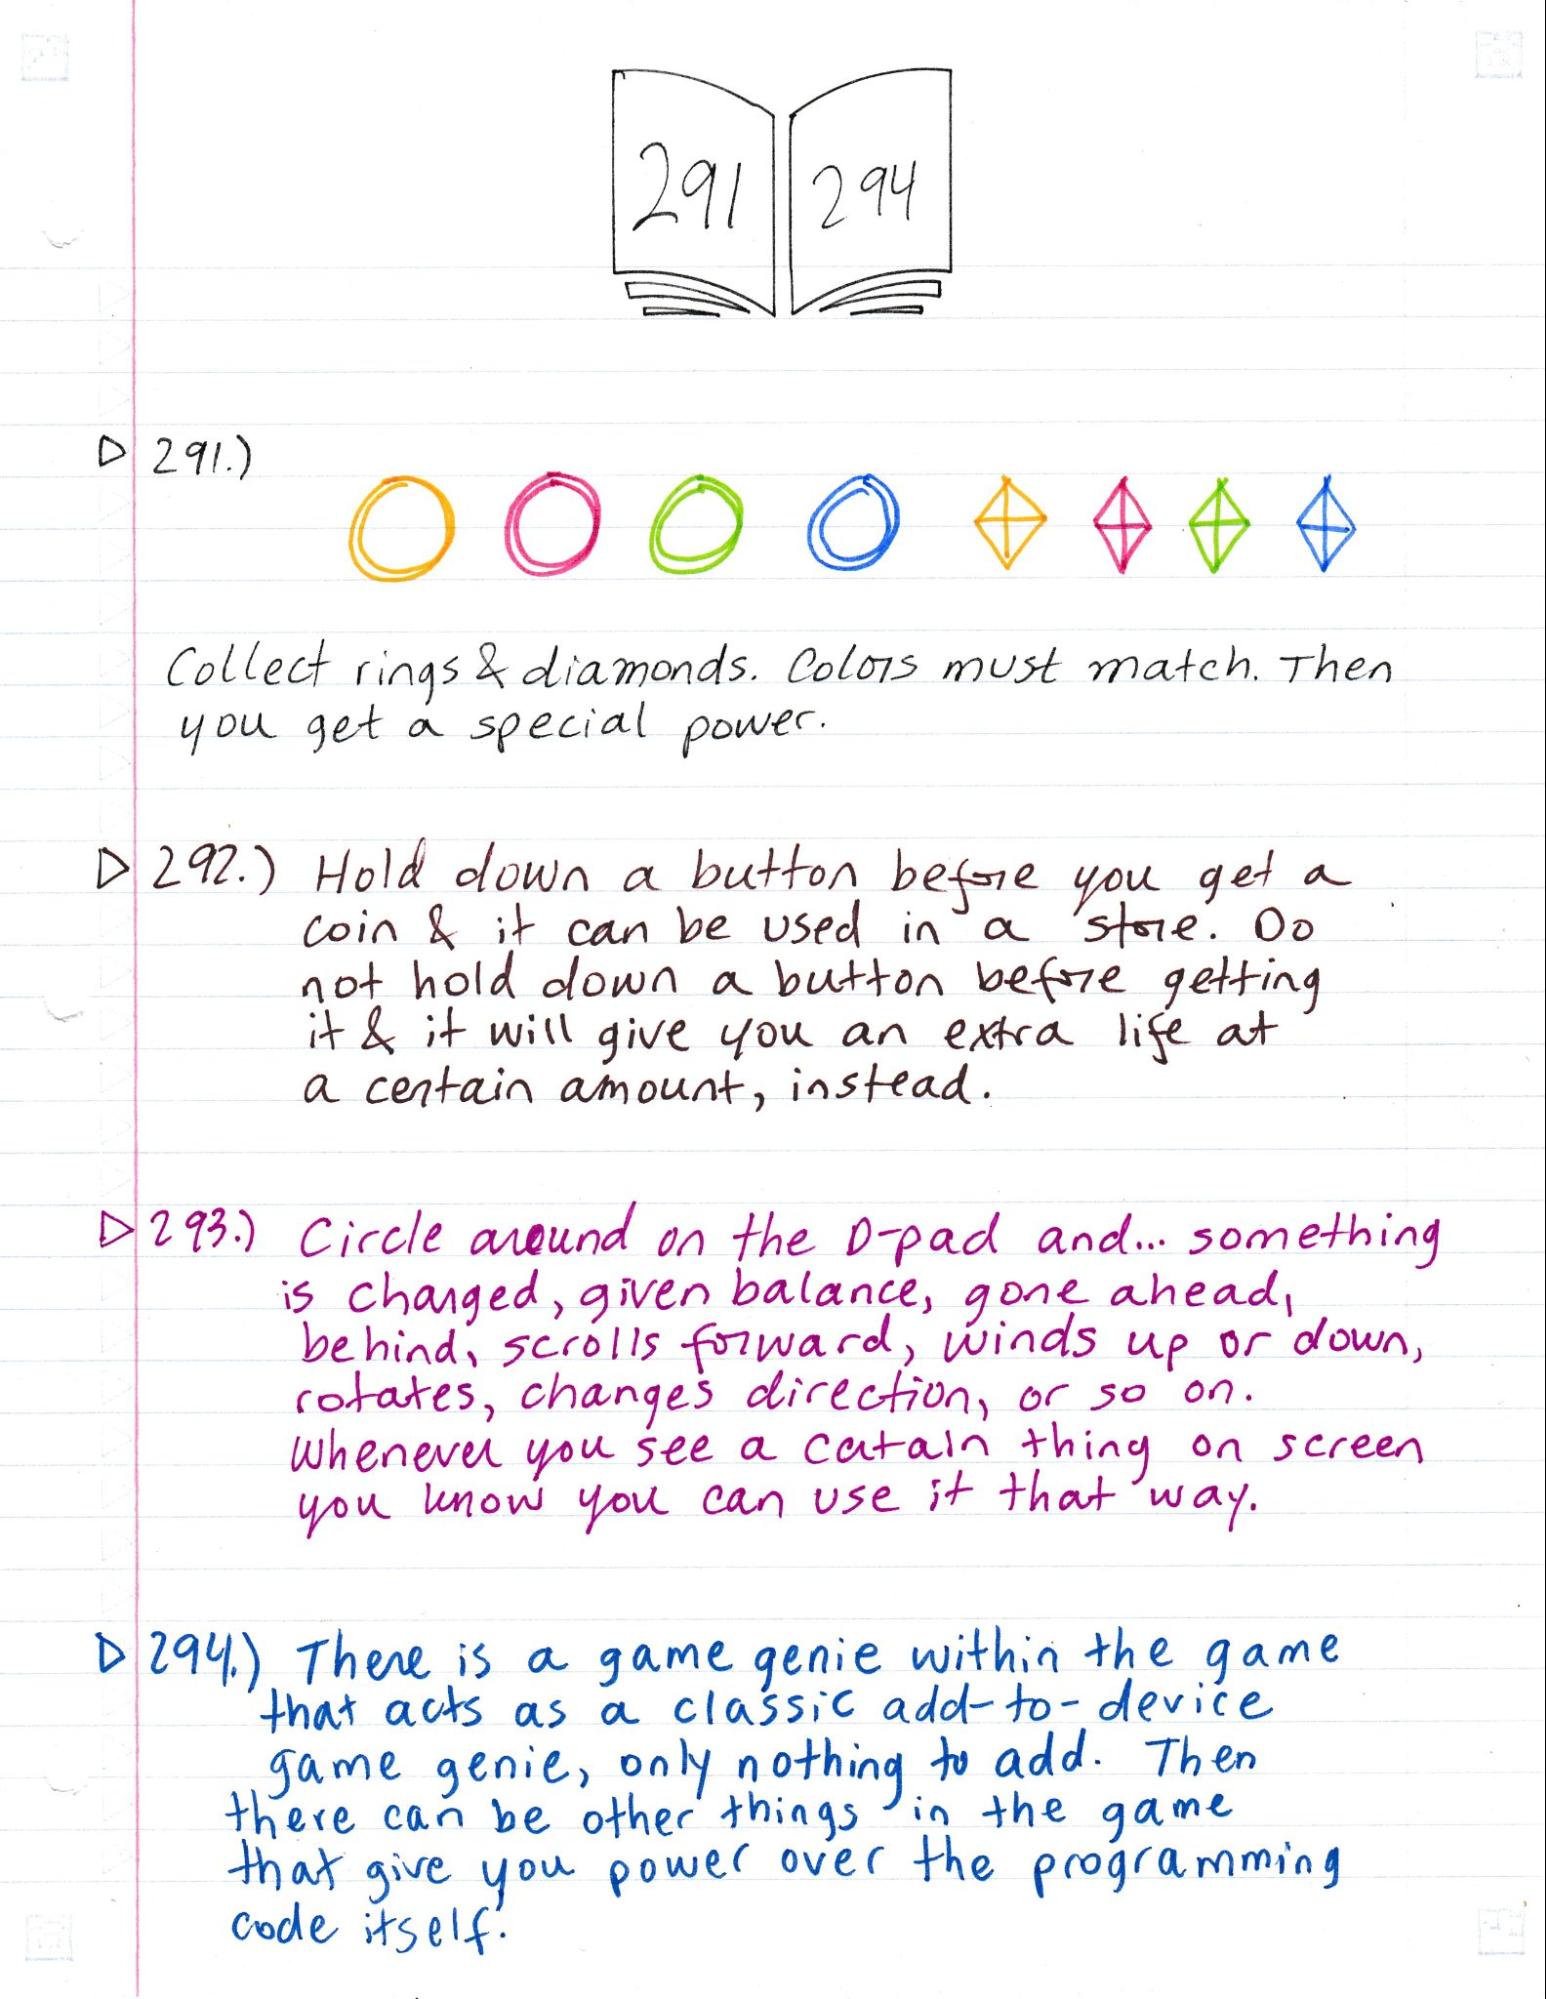 291 294
291.)
Collect rings & diamonds. Colors must match. Then
you get a special power.
292.) Hold down a button before you get a
coin & it can be used in a store. Do
not hold down a button before getting
it & it will give you an extra life at
a certain amount, instead.
293.) Circle around on the D-pad and... something
is changed, given balance, gone ahead,
behind, scrolls forward, winds up or down,
rotates, changes direction, or so on.
Whenever you see a catain thing on screen
you know you can use it that way.
294.) There is a game genie within the game
that acts as a classic add-to-device
game genie, only nothing to add. Then
there can be other things in the game
that give you power over the programming
code itself.